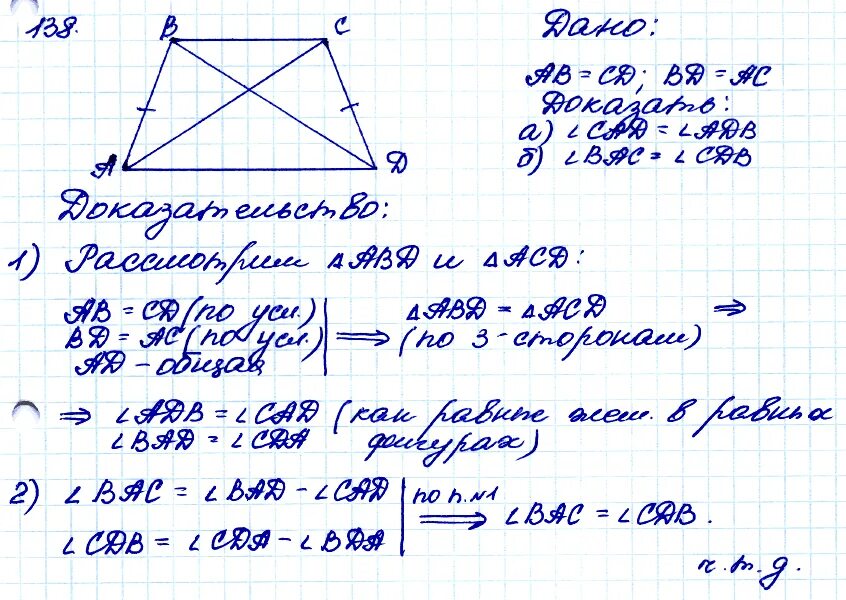 138.
B
C
A
D
Дано:
AB = CD; BD = AC
Доказать:
а) ∠CAD = ∠ADB
б) ∠BAC = ∠CDB
Доказательство:
1) Рассмотрим △ABD и △ACD:
AB = CD (по усл.)
BD = AC (по усл.)
AD - общая
⇒ △ABD = △ACD ⇒
(по 3-сторонам)
⇒ ∠ADB = ∠CAD (как равные элем. в равных
∠BAD = ∠CDA фигурах)
2) ∠BAC = ∠BAD - ∠CAD
∠CDB = ∠CDA - ∠BDA
по п.№1
⇒ ∠BAC = ∠CDB.
ч.т.д.